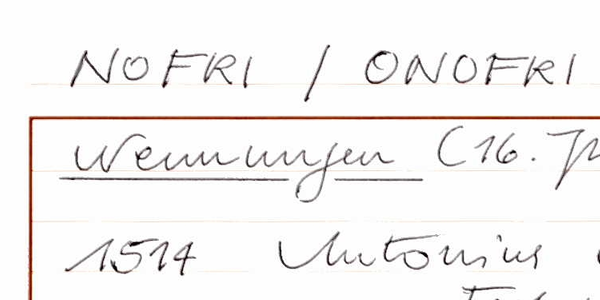 NOFRI / ONOFRI
Nennungen (16.
1514 Antonius